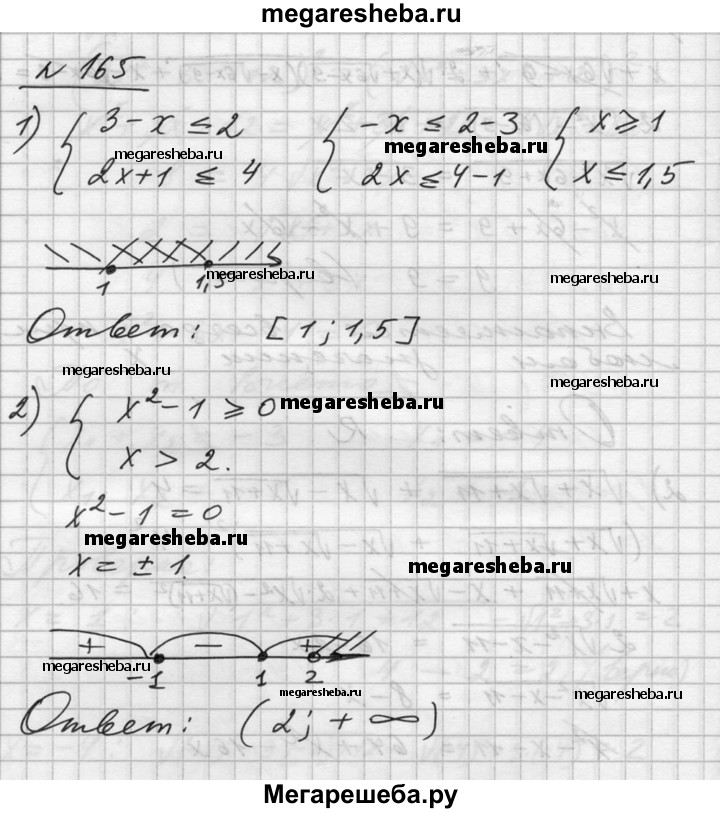 megaresheba.ru
№ 165
1) { 3 - x ≤ 2 { -x ≤ 2 - 3 { x ≥ 1
megaresheba.ru megaresheba.ru
2x + 1 ≤ 4 2x ≤ 4 - 1 x ≤ 1,5
megaresheba.ru megaresheba.ru
1 1,5
Ответ: [1; 1,5]
megaresheba.ru
2) { x² - 1 ≥ 0 megaresheba.ru
x > 2.
x² - 1 = 0
megaresheba.ru
x = ± 1. megaresheba.ru
+ - +
megaresheba.ru megaresheba.ru
-1 1 2
megaresheba.ru megaresheba.ru
Ответ: (2; + ∞)
Мегарешеба.ру